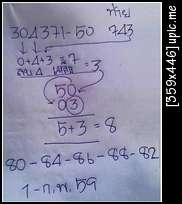 ท้าย
304371-50 743
0+4+3 = 7
= 3
50
03
5+3 = 8
80-84-86-88-82
1-ก.พ. 59
[359x446] upic.me